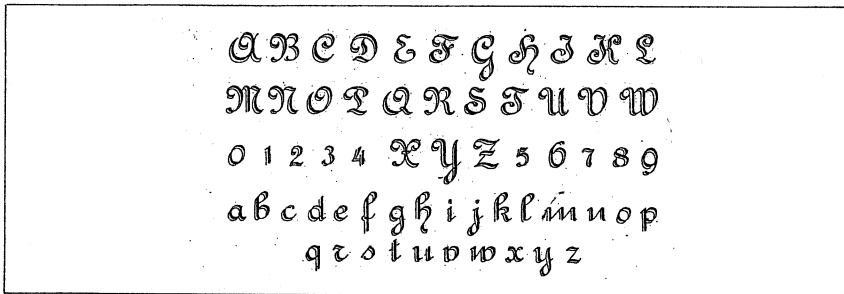 A B C D E F G H I K L
M N O P Q R S T U V W
0 1 2 3 4 X Y Z 5 6 7 8 9
a b c d e f g h i j k l m n o p
q r s t u v w x y z